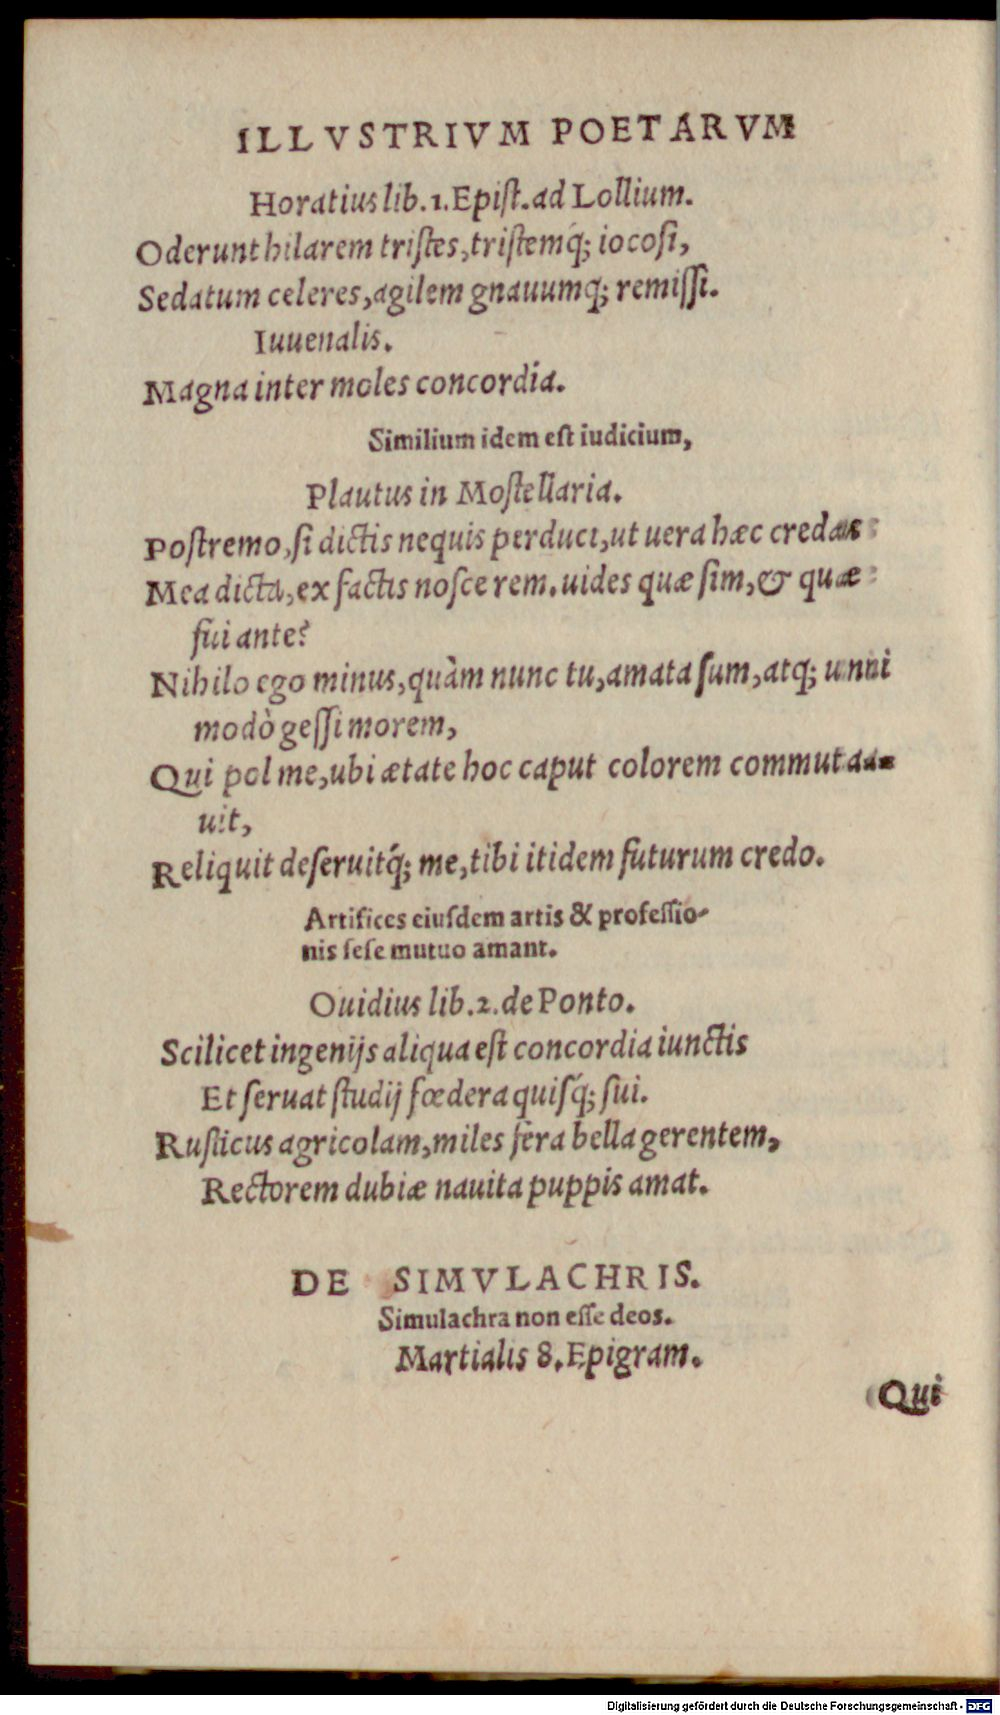 ILLVSTRIVM POETARVM
Horatius lib. 1. Epiſt. ad Lollium.
Oderunt hilarem triſtes, triſtemq́; iocoſi,
Sedatum celeres, agilem gnauumq; remiſſi.
Iuuenalis.
Magna inter moles concordia.
Similium idem eſt iudicium,
Plautus in Moſtellaria.
Poſtremo, ſi dictis nequis perduci, ut uera hæc credas
Mea dicta, ex factis noſce rem. uides quæ ſim, & quæ
fui ante?
Nihilo ego minus, quàm nunc tu, amata ſum, atq;
modò geſſi morem,
Qui pol me, ubi ætate hoc caput colorem commuta-
uit,
Reliquit deſeruitq́; me, tibi itidem futurum credo.
Artifices eiuſdem artis & profeſſio-
nis ſeſe mutuo amant.
Ouidius lib. 2. de Ponto.
Scilicet ingenijs aliqua eſt concordia iunctis
Et ſeruat ſtudij fœdera quiſq́; ſui.
Ruſticus agricolam, miles fera bella gerentem,
Rectorem dubiæ nauita puppis amat.
DE SIMVLACHRIS.
Simulachra non eſſe deos.
Martialis 8. Epigram.
Qui
Digitalisierung gefördert durch die Deutsche Forschungsgemeinschaft - DFG